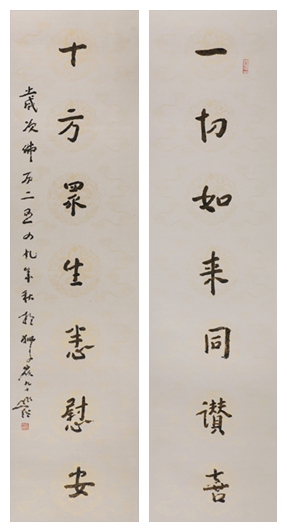 一切如来同讚喜
十方眾生悉慰安
歲次佛历二五四九年秋於狮子